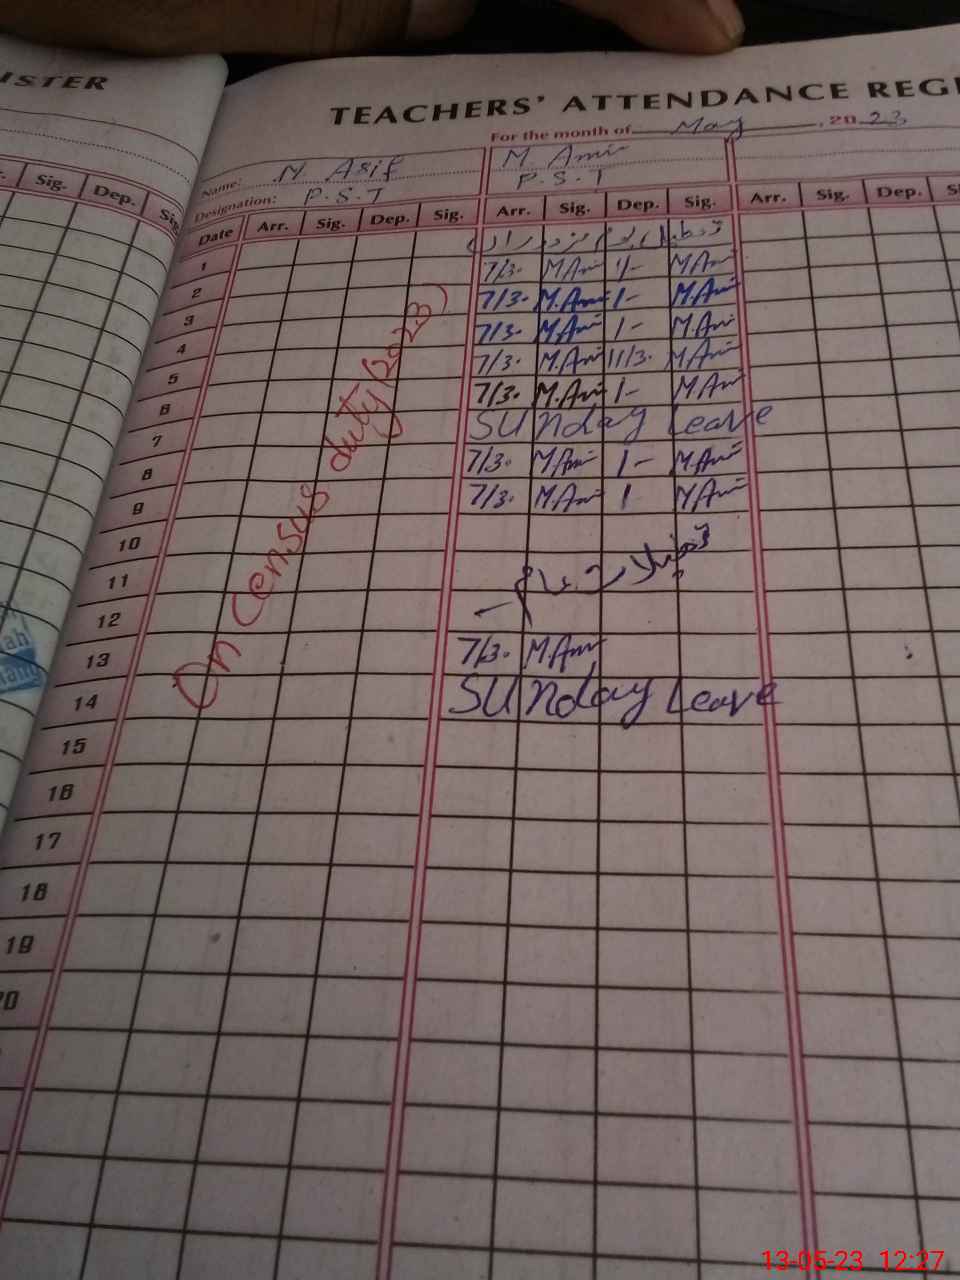 ISTER
TEACHERS' ATTENDANCE REGI
For the month of May, 2023
Name: M. Asif M. Amir
Designation: P.S.T P.S.T
Sig. Dep. Sig.
Date Arr. Sig. Dep. Sig. Arr. Sig. Dep. Sig. Arr. Sig. Dep. S
تعطیل یوم مزدوراں
1 7/3. M.Amir 1/- M.Amir
2 7/3. M.Amir 1- M.Amir
3 7/3. M.Amir 1- M.Amir
4 7/3. M.Amir 11/3. M.Amir
5 7/3. M.Amir 1- M.Amir
6 SUNday Leave
7 7/3. M.Amir 1- M.Amir
8 7/3. M.Amir 1 M.Amir
9
10
11 تعطیلات
12
13 7/3. M.Amir
14 SUNday Leave
15
16
17
18
19
20
On Census duty (2023)
13-05-23 12:27